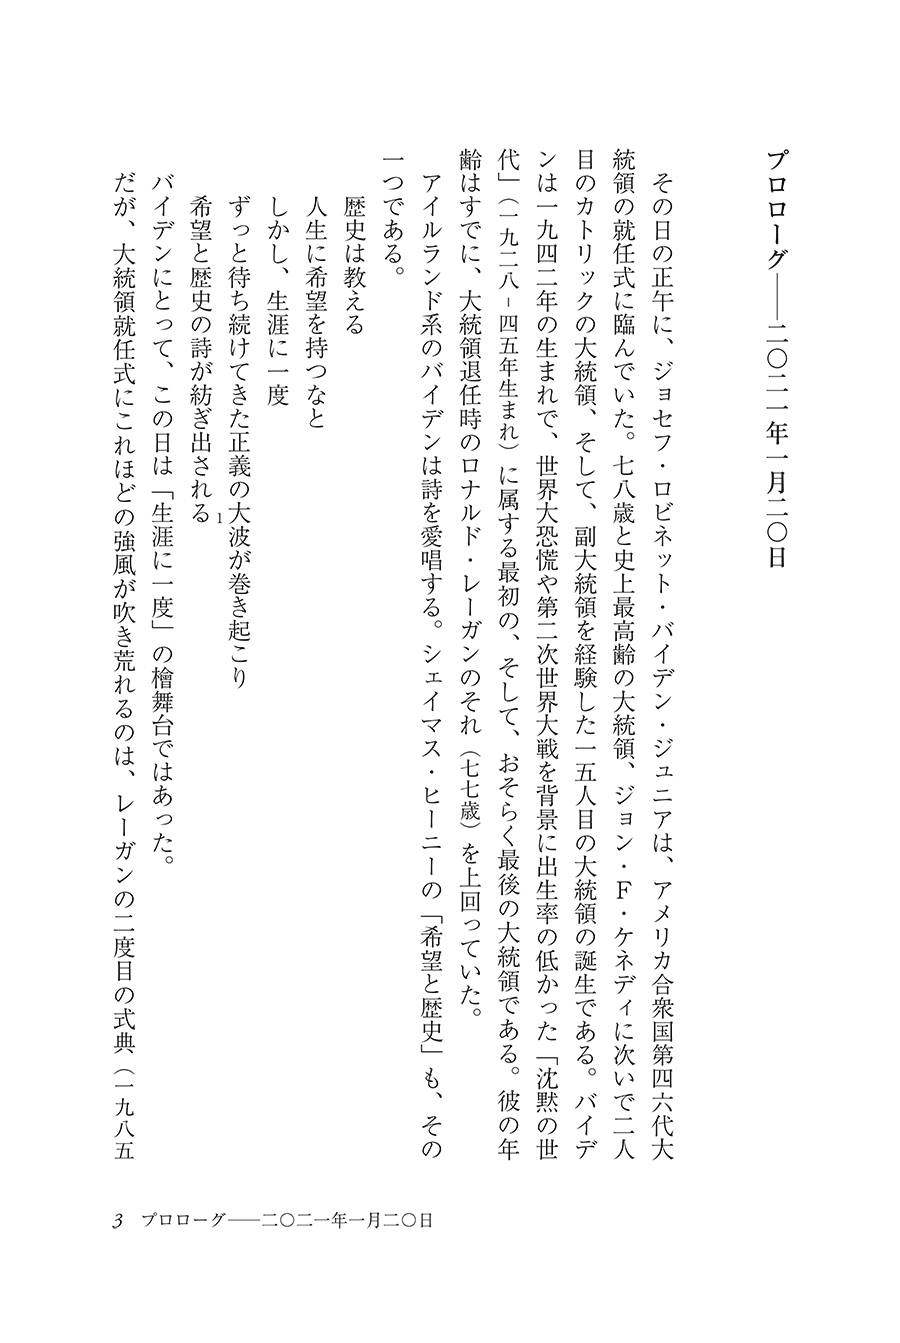 プロローグ――二〇二一年一月二〇日
その日の正午に、ジョセフ・ロビネット・バイデン・ジュニアは、アメリカ合衆国第四六代大
統領の就任式に臨んでいた。七八歳と史上最高齢の大統領、ジョン・F・ケネディに次いで二人
目のカトリックの大統領、そして、副大統領を経験した一五人目の大統領の誕生である。バイデ
ンは一九四二年の生まれで、世界大恐慌や第二次世界大戦を背景に出生率の低かった「沈黙の世
代」（一九二八－四五年生まれ）に属する最初の、そして、おそらく最後の大統領である。彼の年
齢はすでに、大統領退任時のロナルド・レーガンのそれ（七七歳）を上回っていた。
アイルランド系のバイデンは詩を愛唱する。シェイマス・ヒーニーの「希望と歴史」も、その
一つである。
歴史は教える
人生に希望を持つなと
しかし、生涯に一度
ずっと待ち続けてきた正義の大波が巻き起こり
希望と歴史の詩が紡ぎ出される1
バイデンにとって、この日は「生涯に一度」の檜舞台ではあった。
だが、大統領就任式にこれほどの強風が吹き荒れるのは、レーガンの二度目の式典（一九八五
3 プロローグ――二〇二一年一月二〇日